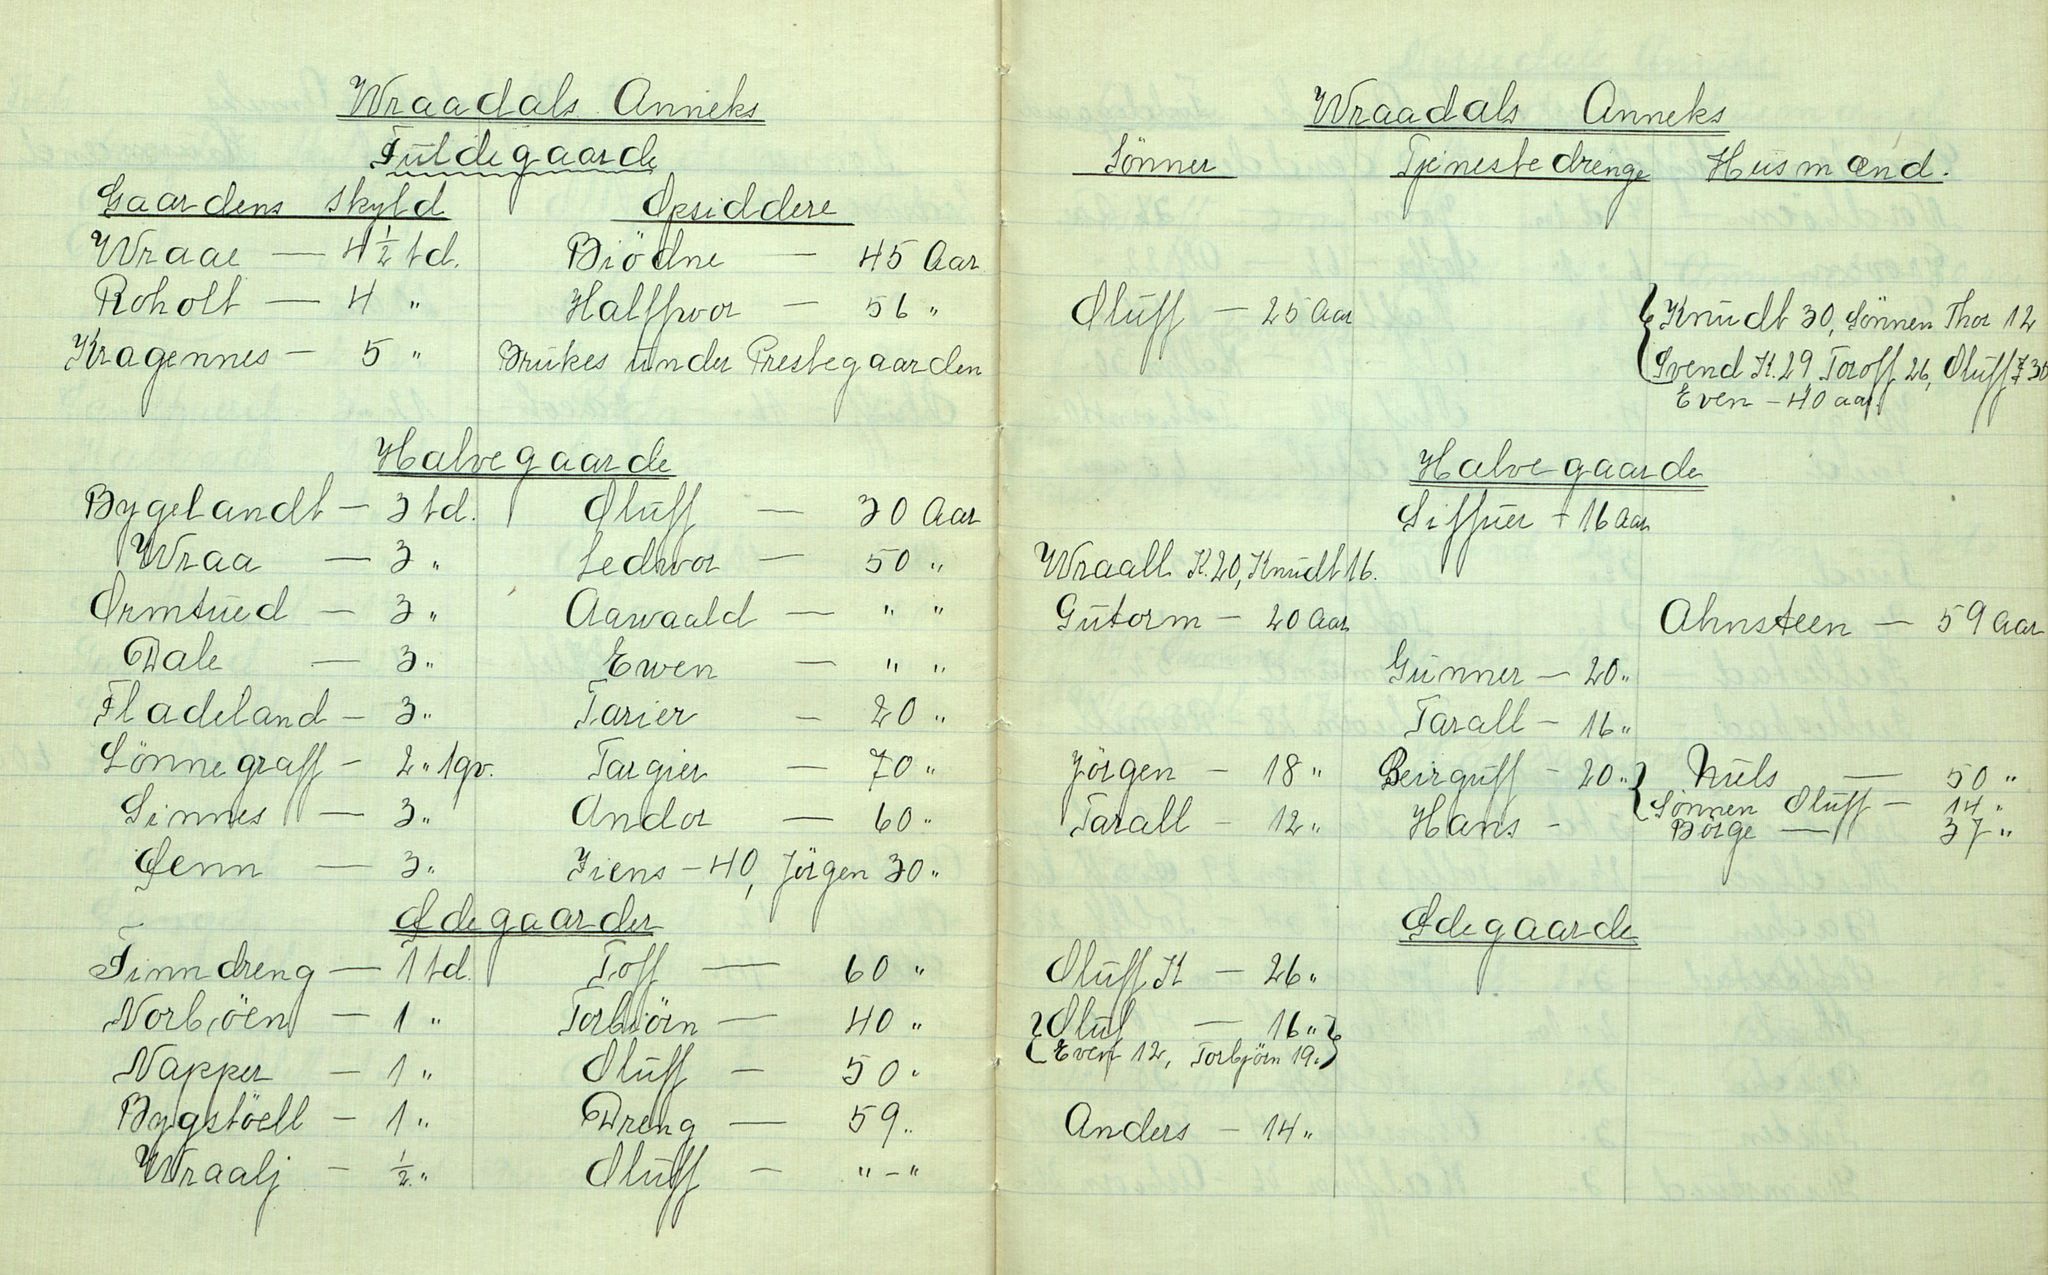 Wraadals Anneks
Fuldegaarde
Gaardens skyld Opsiddere
Wraae — 4 1/2 td. Biödne — 45 Aar
Roholt — 4 " Halffvor — 56 "
Kragennes — 5 " Brukes under Prestegaarden
Halvegaarde
Bygelandt — 3 td. Oluff — 30 Aar
Wraa — 3 " Ledwor — 50 "
Ormtued — 3 " Aawaald — " "
Dale — 3 " Ewen — " "
Fladeland — 3 " Tarier — 20 "
Lönnegraff — 2 " 1 gv. Targier — 70 "
Sinnes — 3 " Andor — 60 "
Qenn — 3 " Jiens — 40, Jörgen 30 "
Ødegaarder
Finndreng — 1 td. Toff — 60 "
Norbiöen — 1 " Torbiörn — 40 "
Napper — 1 " Oluff — 50 "
Bygstöell — 1 " Dreng — 59 "
Wraalj — 1/2 " Oluff — " — "
Wraadals Anneks
Sönner Tjenestedrenge Husmænd.
Oluff — 25 Aar { Knudt 30, Sönnen Thor 12
Svend K. 29 Toroff 26, Oluff 30
Even — 40 aar.
Halvegaarde
Siffuer — 16 Aar
Wraall K. 20, Knudt 16.
Gutorm — 20 Aar Ahnsteen — 59 Aar
Gunner — 20 "
Tarall — 16 "
Jörgen — 18 " Beirguff — 20 " { Niels — 50 "
Sönnen Oluff — 14 "
Tarall — 12 " Hans — Börge — 37 "
Ødegaarde
Oluff K — 26 "
{ Oluf — 16 " }
{ Even 12, Torbjörn 19. }
Anders — 14 "